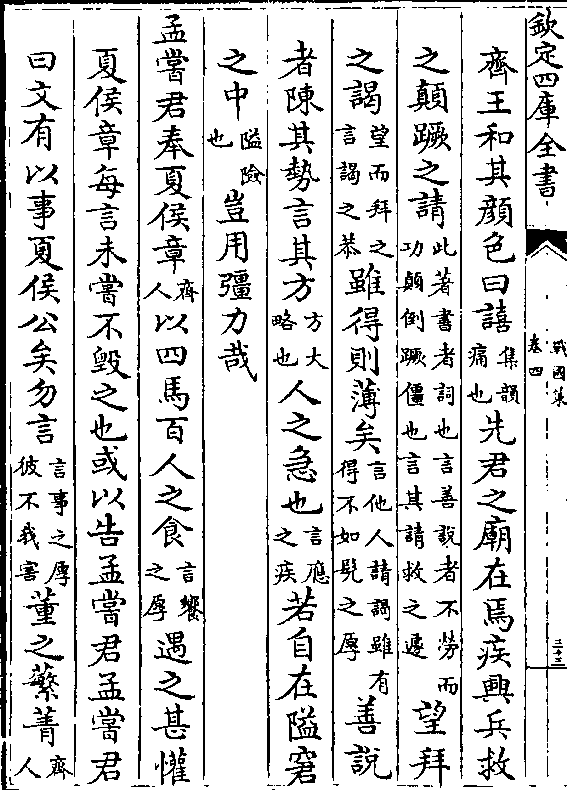 欽定四庫全書
戰國策
卷四
二十三
齊王和其顔色曰譆集韻痛也先君之廟在焉疾興兵救
之顛蹶之請此著書者詞也言善說者不勞而功顛倒蹶僵也言其請救之遽望拜
之謁望而拜之言謁之恭雖得則薄矣言他人請謁雖有得不如髡之厚善說
者陳其勢言其方方大略也人之急也言應之疾若自在隘窘
之中隘險也豈用彊力哉
孟嘗君奉夏侯章齊人以四馬百人之食言饗之厚遇之甚懽
夏侯章每言未嘗不毁之也或以告孟嘗君孟嘗君
曰文有以事夏侯公矣勿言言事之厚彼不我害董之蘩菁齊人